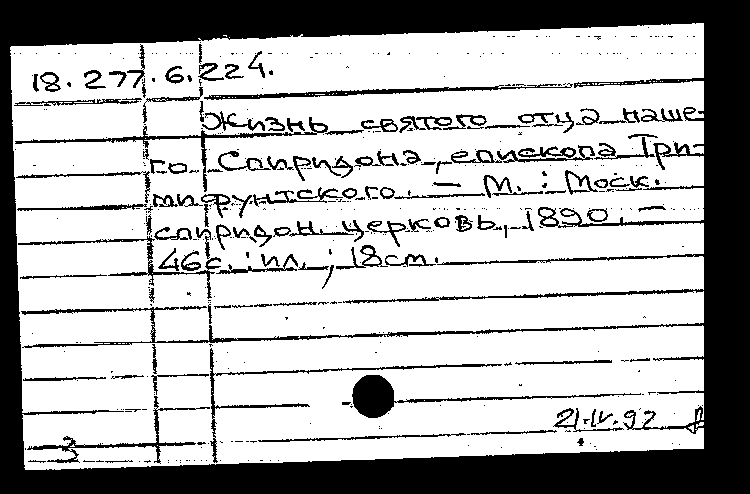 18.277.6.224.
Жизнь святого отца наше-
го Спиридона, епископа Три-
мифунтского. — М. : Моск.
спиридон. церковь, 1890. —
46с. : ил. ; 18см.
21.IV.92
3